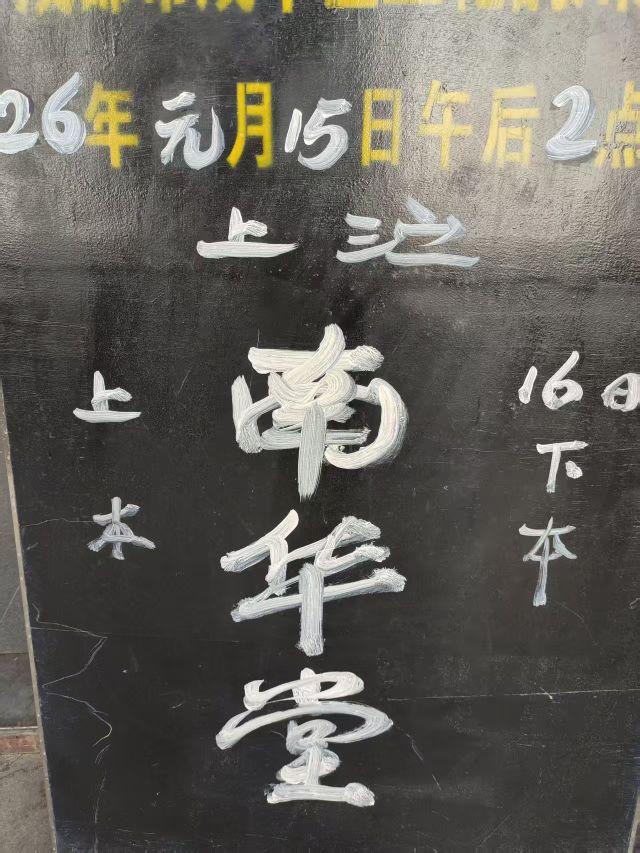 26年元月15日午后2点
上
南华堂
上本
16日
下本